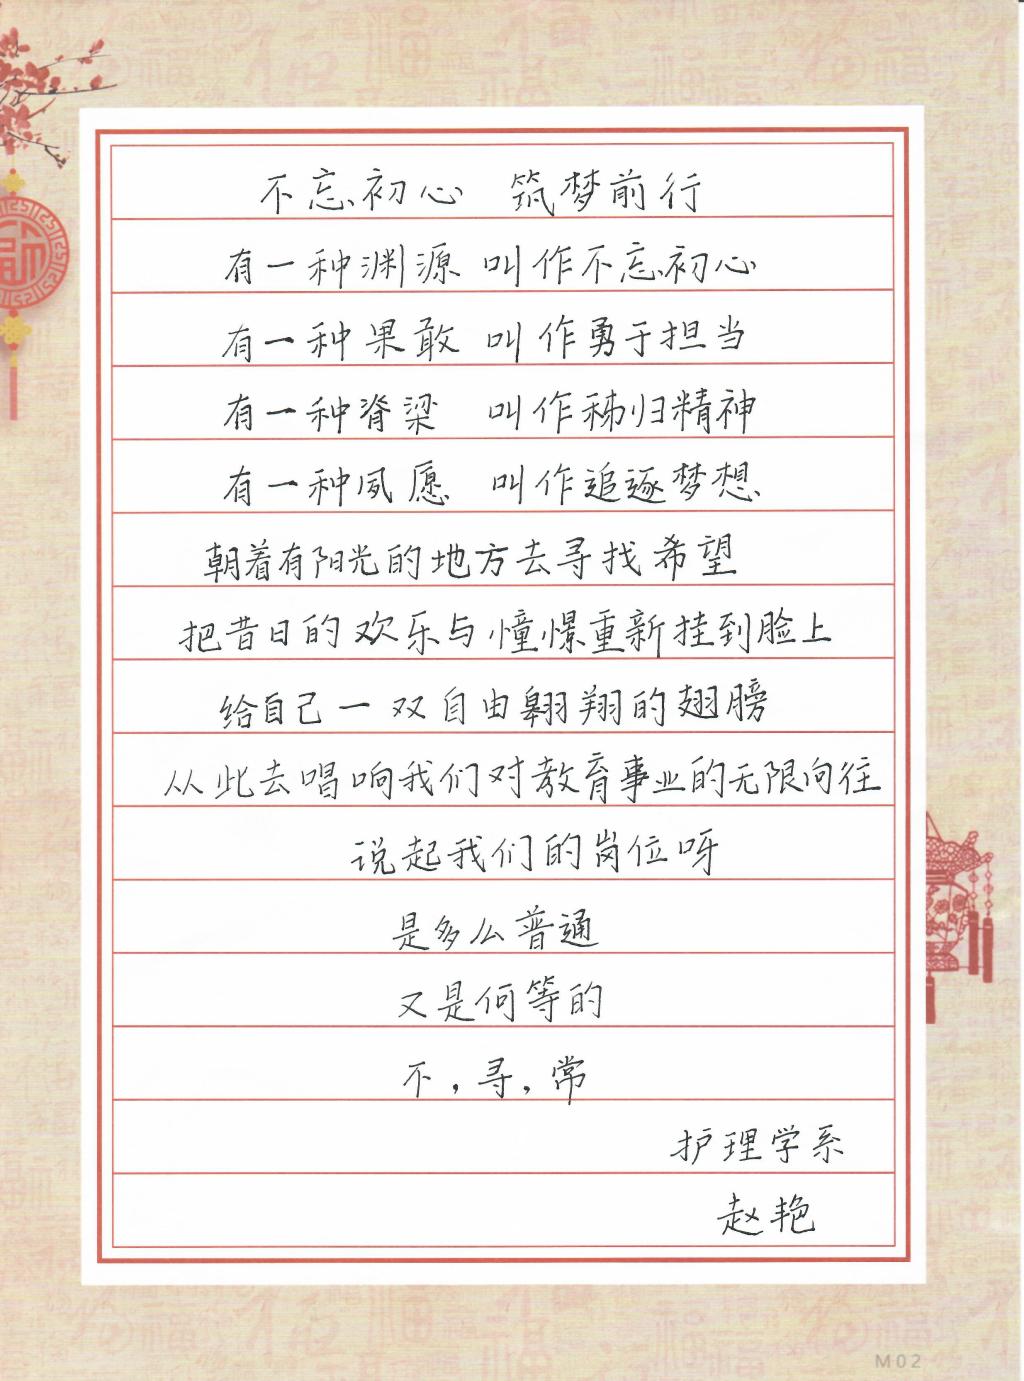 不忘初心 筑梦前行
有一种渊源 叫作不忘初心
有一种果敢 叫作勇于担当
有一种脊梁 叫作秭归精神
有一种夙愿 叫作追逐梦想
朝着有阳光的地方去寻找希望
把昔日的欢乐与憧憬重新挂到脸上
给自己一双自由翱翔的翅膀
从此去唱响我们对教育事业的无限向往
说起我们的岗位呀
是多么普通
又是何等的
不,寻,常
护理学系
赵艳
M02